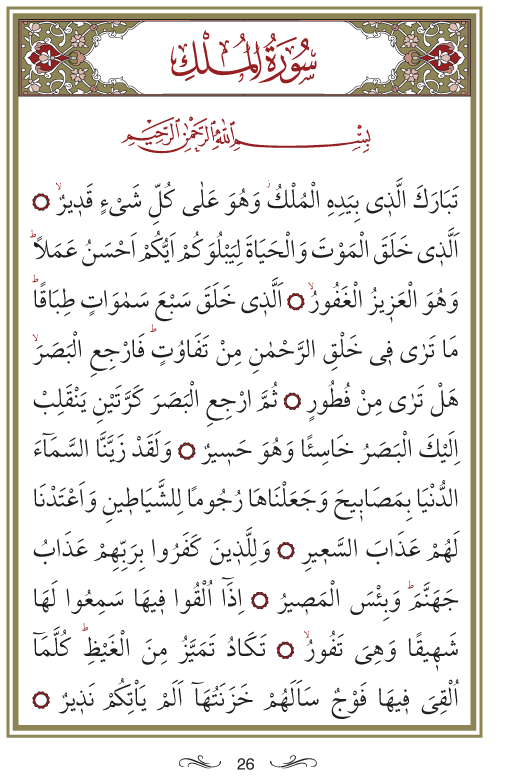 سُورَةُ الْمُلْكِ
بِسْمِ اللّٰهِ الرَّحْمٰنِ الرَّحٖيمِ
تَبَارَكَ الَّذٖى بِيَدِهِ الْمُلْكُۘ وَهُوَ عَلٰى كُلِّ شَىْءٍ قَدٖيرٌۙ ۝
اَلَّذٖى خَلَقَ الْمَوْتَ وَالْحَيَاةَ لِيَبْلُوَكُمْ اَيُّكُمْ اَحْسَنُ عَمَلًاؕ
وَهُوَ الْعَزٖيزُ الْغَفُورُۙ ۝ اَلَّذٖى خَلَقَ سَبْعَ سَمٰوَاتٍ طِبَاقًاؕ
مَا تَرٰى فٖى خَلْقِ الرَّحْمٰنِ مِنْ تَفَاوُتٍؕ فَارْجِعِ الْبَصَرَۙ
هَلْ تَرٰى مِنْ فُطُورٍ ۝ ثُمَّ ارْجِعِ الْبَصَرَ كَرَّتَيْنِ يَنْقَلِبْ
اِلَيْكَ الْبَصَرُ خَاسِئًا وَهُوَ حَسٖيرٌ ۝ وَلَقَدْ زَيَّنَّا السَّمَٓاءَ
الدُّنْيَا بِمَصَابٖيحَ وَجَعَلْنَاهَا رُجُومًا لِلشَّيَاطٖينِ وَاَعْتَدْنَا
لَهُمْ عَذَابَ السَّعٖيرِ ۝ وَلِلَّذٖينَ كَفَرُوا بِرَبِّهِمْ عَذَابُ
جَهَنَّمَؕ وَبِئْسَ الْمَصٖيرُ ۝ اِذَٓا اُلْقُوا فٖيهَا سَمِعُوا لَهَا
شَهٖيقًا وَهِىَ تَفُورُۙ ۝ تَكَادُ تَمَيَّزُ مِنَ الْغَيْظِؕ كُلَّمَٓا
اُلْقِىَ فٖيهَا فَوْجٌ سَاَلَهُمْ خَزَنَتُهَٓا اَلَمْ يَاْتِكُمْ نَذٖيرٌ ۝
26